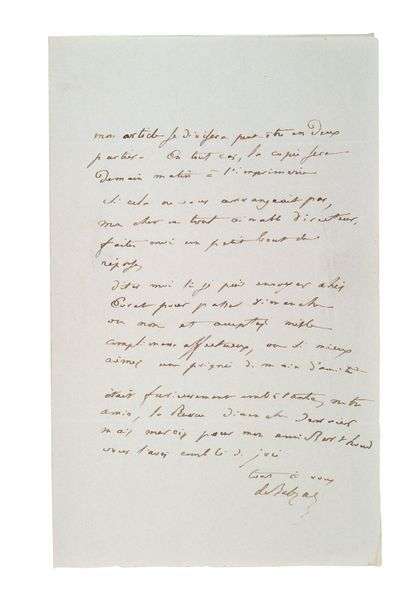 mon article se divisera peut être en Deux
parties. En tout cas, la copie sera
Demain matin à l'imprimerie
Si cela ne vous arrangeait pas,
mon cher et tout aimable directeur,
faites moi un petit bout de
réponse
Dites moi si je puis envoyer chez
pour dimanche
ou non et acceptez mille
complimens affectueux, ou si mieux
aimez une poignée de main d'amitié
était furieusement notre
ami, la Revue
mais mercis pour mon ami
vous l'avez comblé de joie
tout à vous
de Balzac